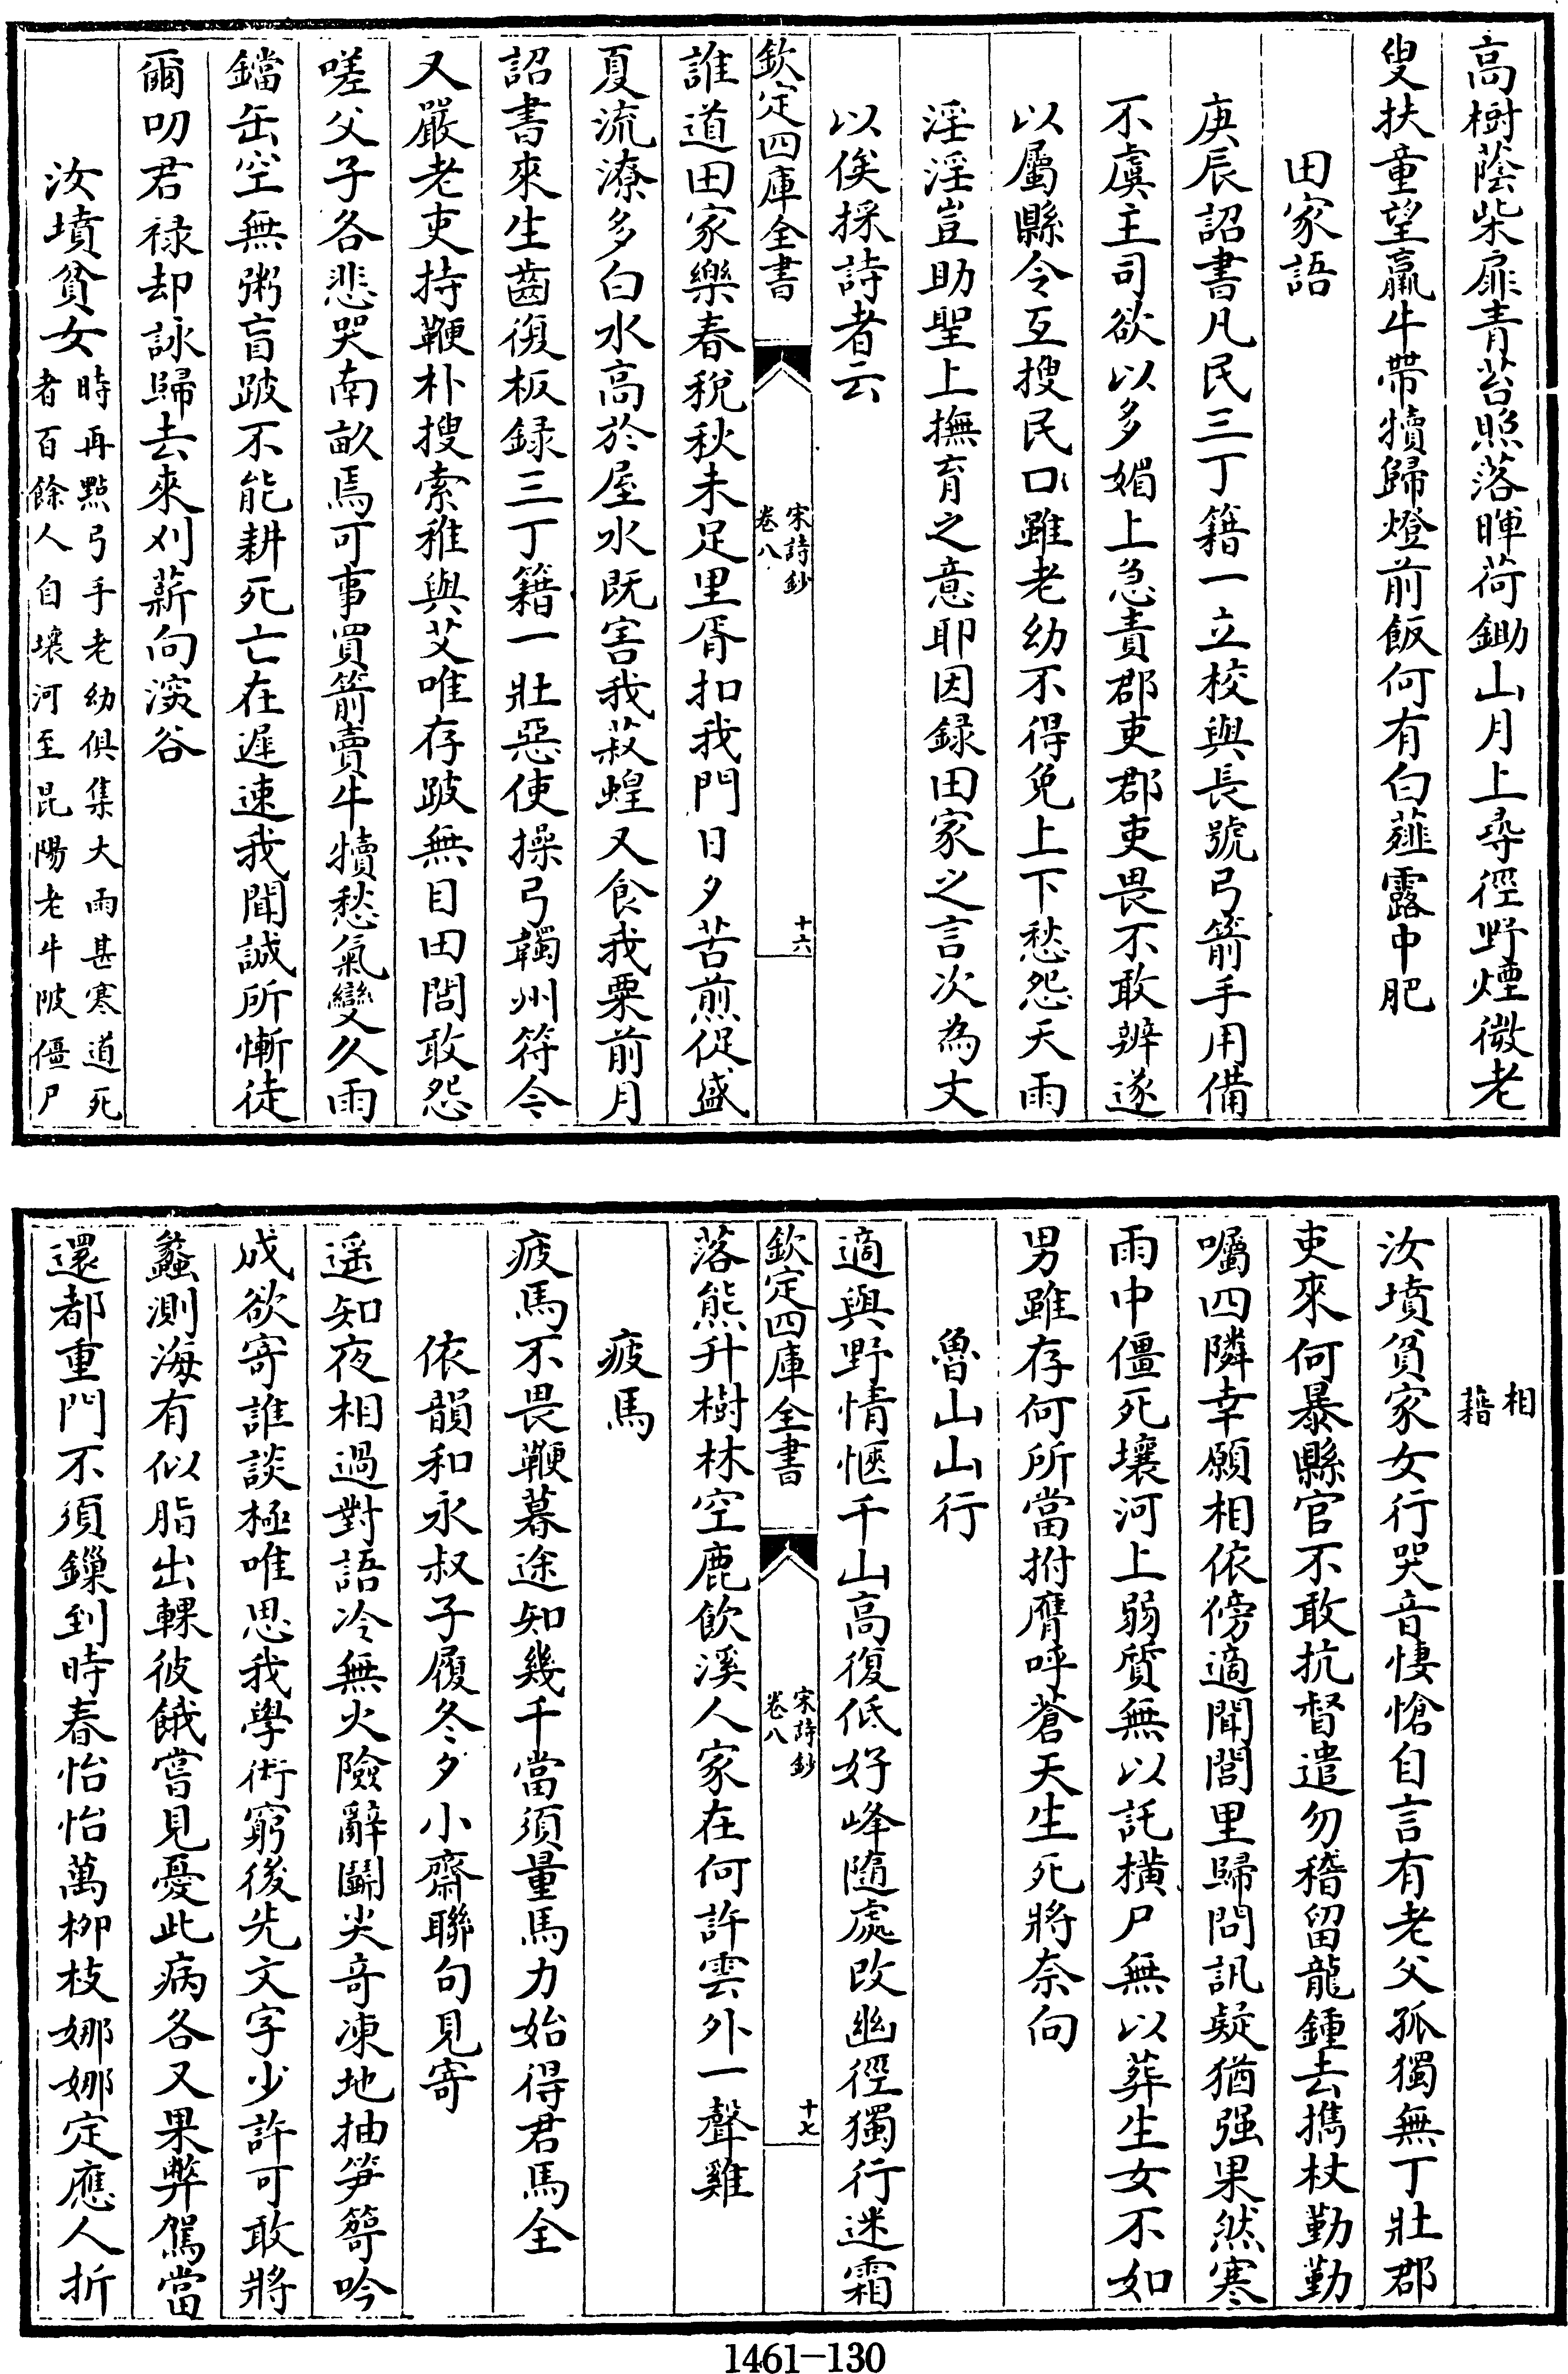 高樹蔭柴扉青苔照落暉荷鋤山月上尋徑野煙微老
叟扶童望羸牛帶犢歸燈前飯何有白薤露中肥
田家語
庚辰詔書凡民三丁籍一立校與長號弓箭手用備
不虞主司欲以多媚上急責郡吏郡吏畏不敢辨遂
以屬縣令互搜民口雖老幼不得免上下愁怨天雨
淫淫豈助聖上撫育之意耶因録田家之言次為文
以俟採詩者云
欽定四庫全書
宋詩鈔
卷八
十六
誰道田家樂春稅秋未足里胥扣我門日夕苦煎促盛
夏流潦多白水高於屋水既害我菽蝗又食我粟前月
詔書來生齒復板録三丁籍一壯惡使操弓韣州符今
又嚴老吏持鞭朴搜索稚與艾唯存跛無目田閭敢怨
嗟父子各悲哭南畝焉可事買箭賣牛犢愁氣變久雨
鐺缶空無粥盲跛不能耕死亡在遲速我聞誠所慚徒
爾叨君禄却詠歸去來刈薪向深谷
汝墳貧女
時再點弓手老幼俱集大雨甚寒道死
者百餘人自壤河至昆陽老牛陂僵尸
相
藉
汝墳貧家女行哭音悽愴自言有老父孤獨無丁壯郡
吏來何暴縣官不敢抗督遣勿稽留龍鍾去攜杖勤勤
囑四隣幸願相依傍適聞閭里歸問訊疑猶强果然寒
雨中僵死壤河上弱質無以託橫尸無以葬生女不如
男雖存何所當拊膺呼蒼天生死將奈向
魯山山行
適與野情愜千山高復低好峰隨處改幽徑獨行迷霜
欽定四庫全書
宋詩鈔
卷八
十七
落熊升樹林空鹿飲溪人家在何許雲外一聲雞
疲馬
疲馬不畏鞭暮途知幾千當須量馬力始得君馬全
依韻和永叔子履冬夕小齋聯句見寄
遥知夜相過對語冷無火險辭鬭尖奇凍地抽笋箨吟
成欲寄誰談極唯思我學術窮後先文字少許可敢將
蠡測海有似脂出輠彼餓嘗見憂此病各又果弊駕當
還都重門不須鏁到時春怡怡萬栁枝娜娜定應人折
1461-130